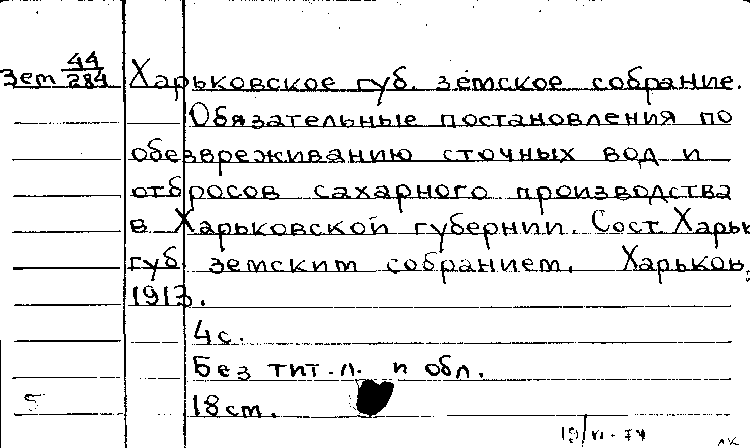 Зем 44/284 Харьковское губ. земское собрание.
Обязательные постановления по
обезвреживанию сточных вод и
отбросов сахарного производства
в Харьковской губернии. Сост. Харьк
губ. земским собранием. Харьков,
1913.
4с.
Без тит.л. и обл.
5 18см.
19/VI-74